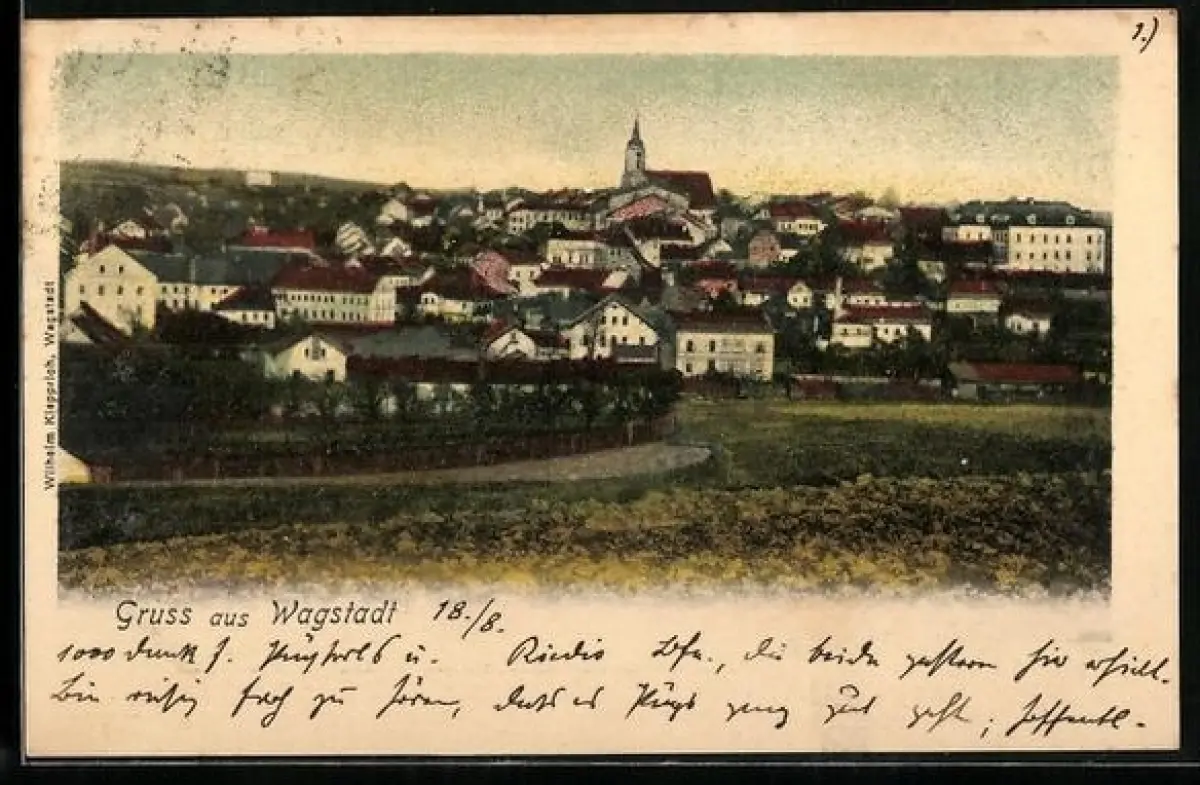 1.)
Wilhelm Klapprich, Wagstadt
Gruss aus Wagstadt 18./8.
1000 dank f. u. die beide gestern hier erhielt.
Bin riesig froh zu hören, dass es ganz gut geht; hoffentl.-